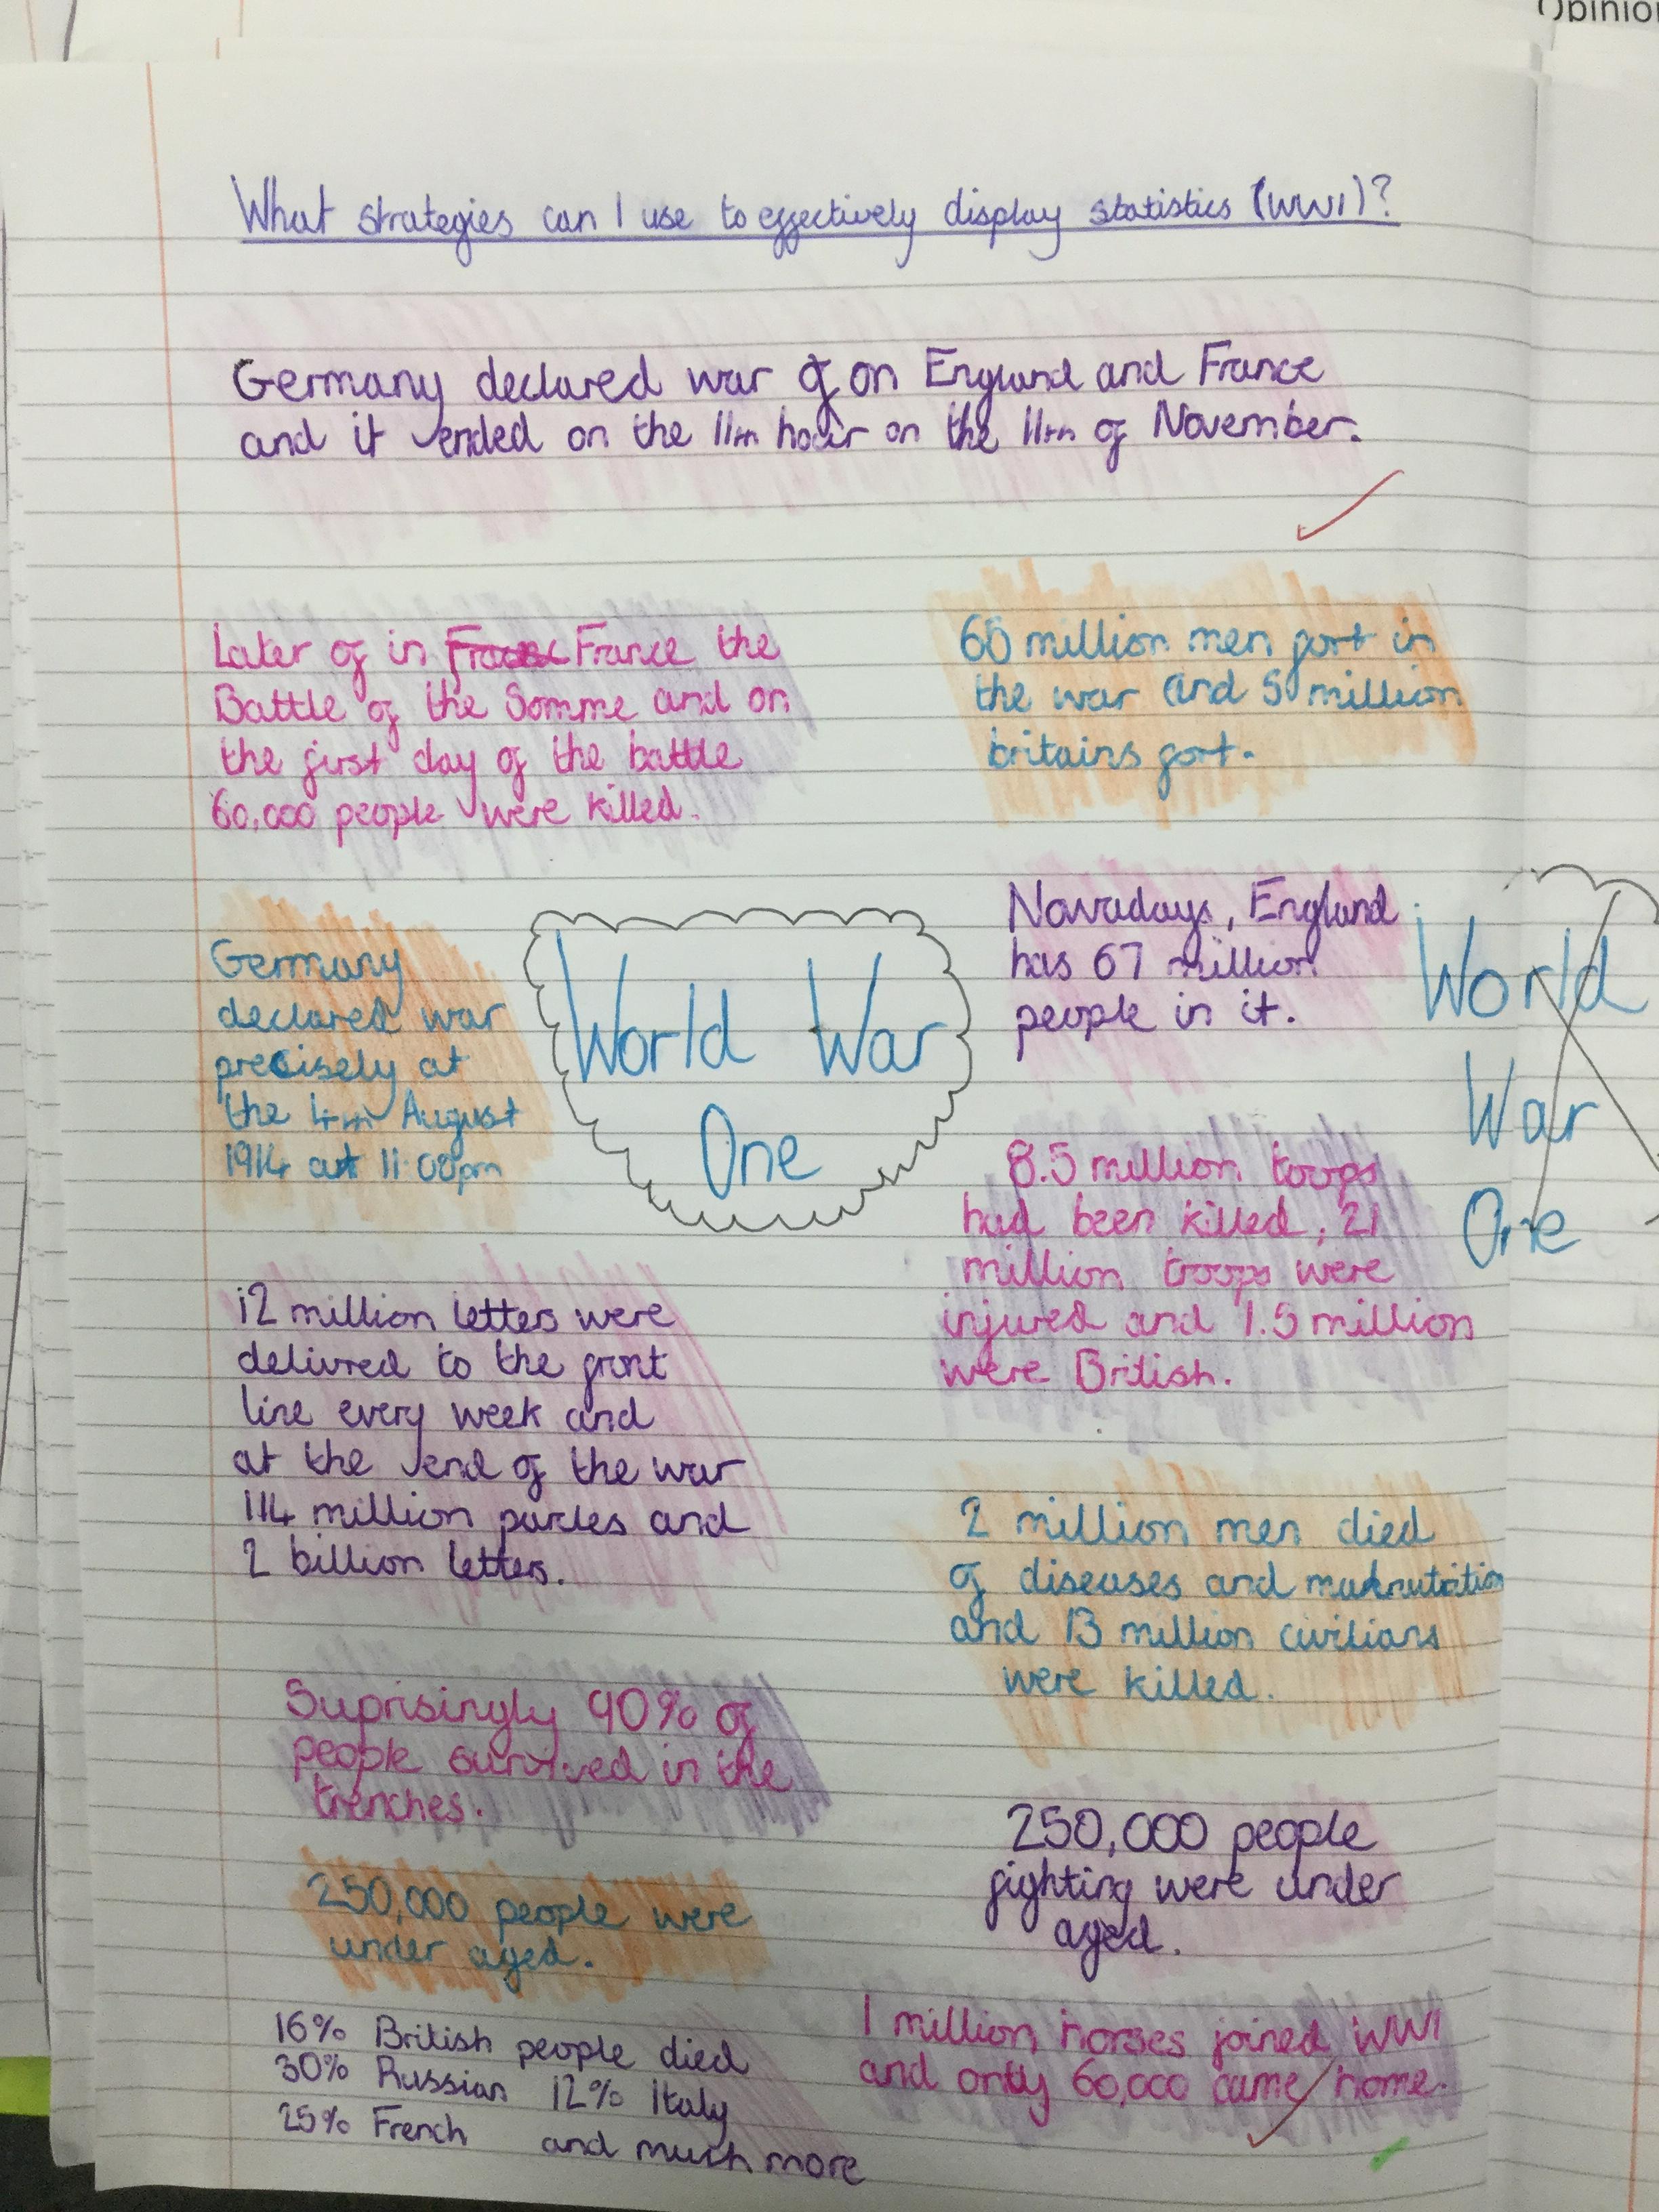 Opinio
What strategies can I use to effectively display statistics (WW1)?
Germany declared war of on England and France
and it ended on the 11th hour on the 11th of November.
Later of in France the
Battle of the Somme and on
the first day of the battle
60,000 people were killed.
65 million men fort in
the war and 5 million
britains fort.
Germany
declared war
precisely at
the 4th August
1914 at 11:00pm
World War
One
Nowadays, England
has 67 million
people in it.
World
War
One
8.5 million toops
had been killed, 21
million troops were
injured and 1.5 million
were British.
12 million letters were
delivred to the front
line every week and
at the end of the war
114 million parcles and
2 billion letters.
2 million men died
of diseases and malnutrition
and 13 million civilians
were killed.
Suprisingly 90% of
people survived in the
trenches.
250,000 people
fighting were under
aged.
250,000 people were
under aged.
16% British people died
30% Russian 12% Italy
25% French and much more
1 million horses joined WW1
and only 60,000 came home.